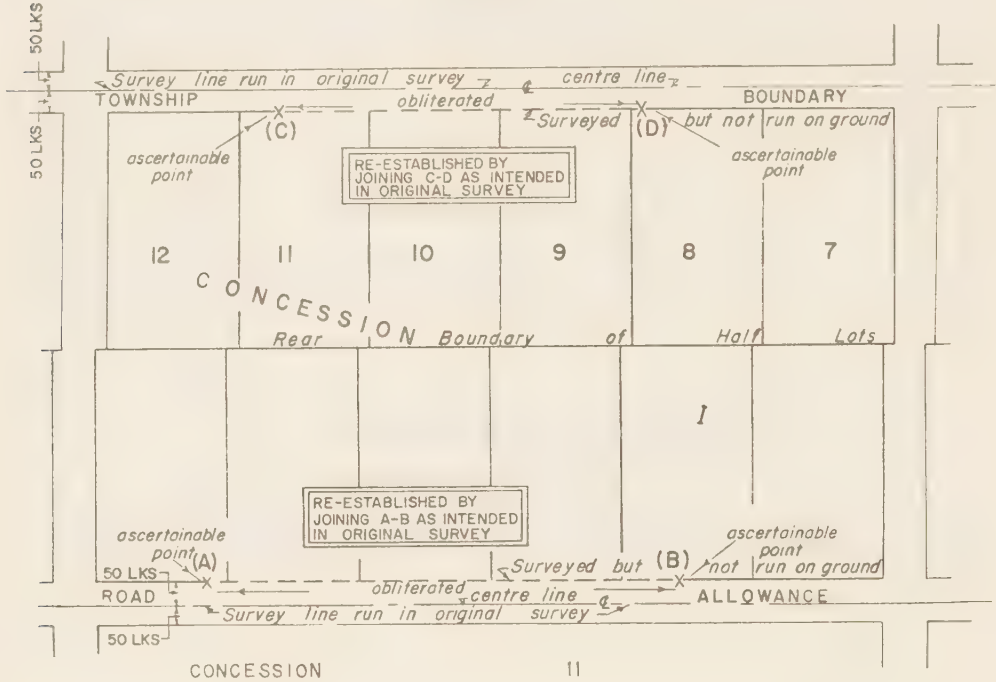 50 LKS
Survey line run in original survey ℄ centre line
TOWNSHIP obliterated BOUNDARY
50 LKS
(C) Surveyed (D) but not run on ground
ascertainable
point
ascertainable
point
RE-ESTABLISHED BY
JOINING C-D AS INTENDED
IN ORIGINAL SURVEY
12 11 10 9 8 7
CONCESSION
Rear Boundary of Half Lots
I
RE-ESTABLISHED BY
JOINING A-B AS INTENDED
IN ORIGINAL SURVEY
ascertainable
point
(A)
ascertainable
point
(B)
Surveyed but not run on ground
50 LKS
obliterated
ROAD centre line ℄ ALLOWANCE
Survey line run in original survey
50 LKS
CONCESSION 11